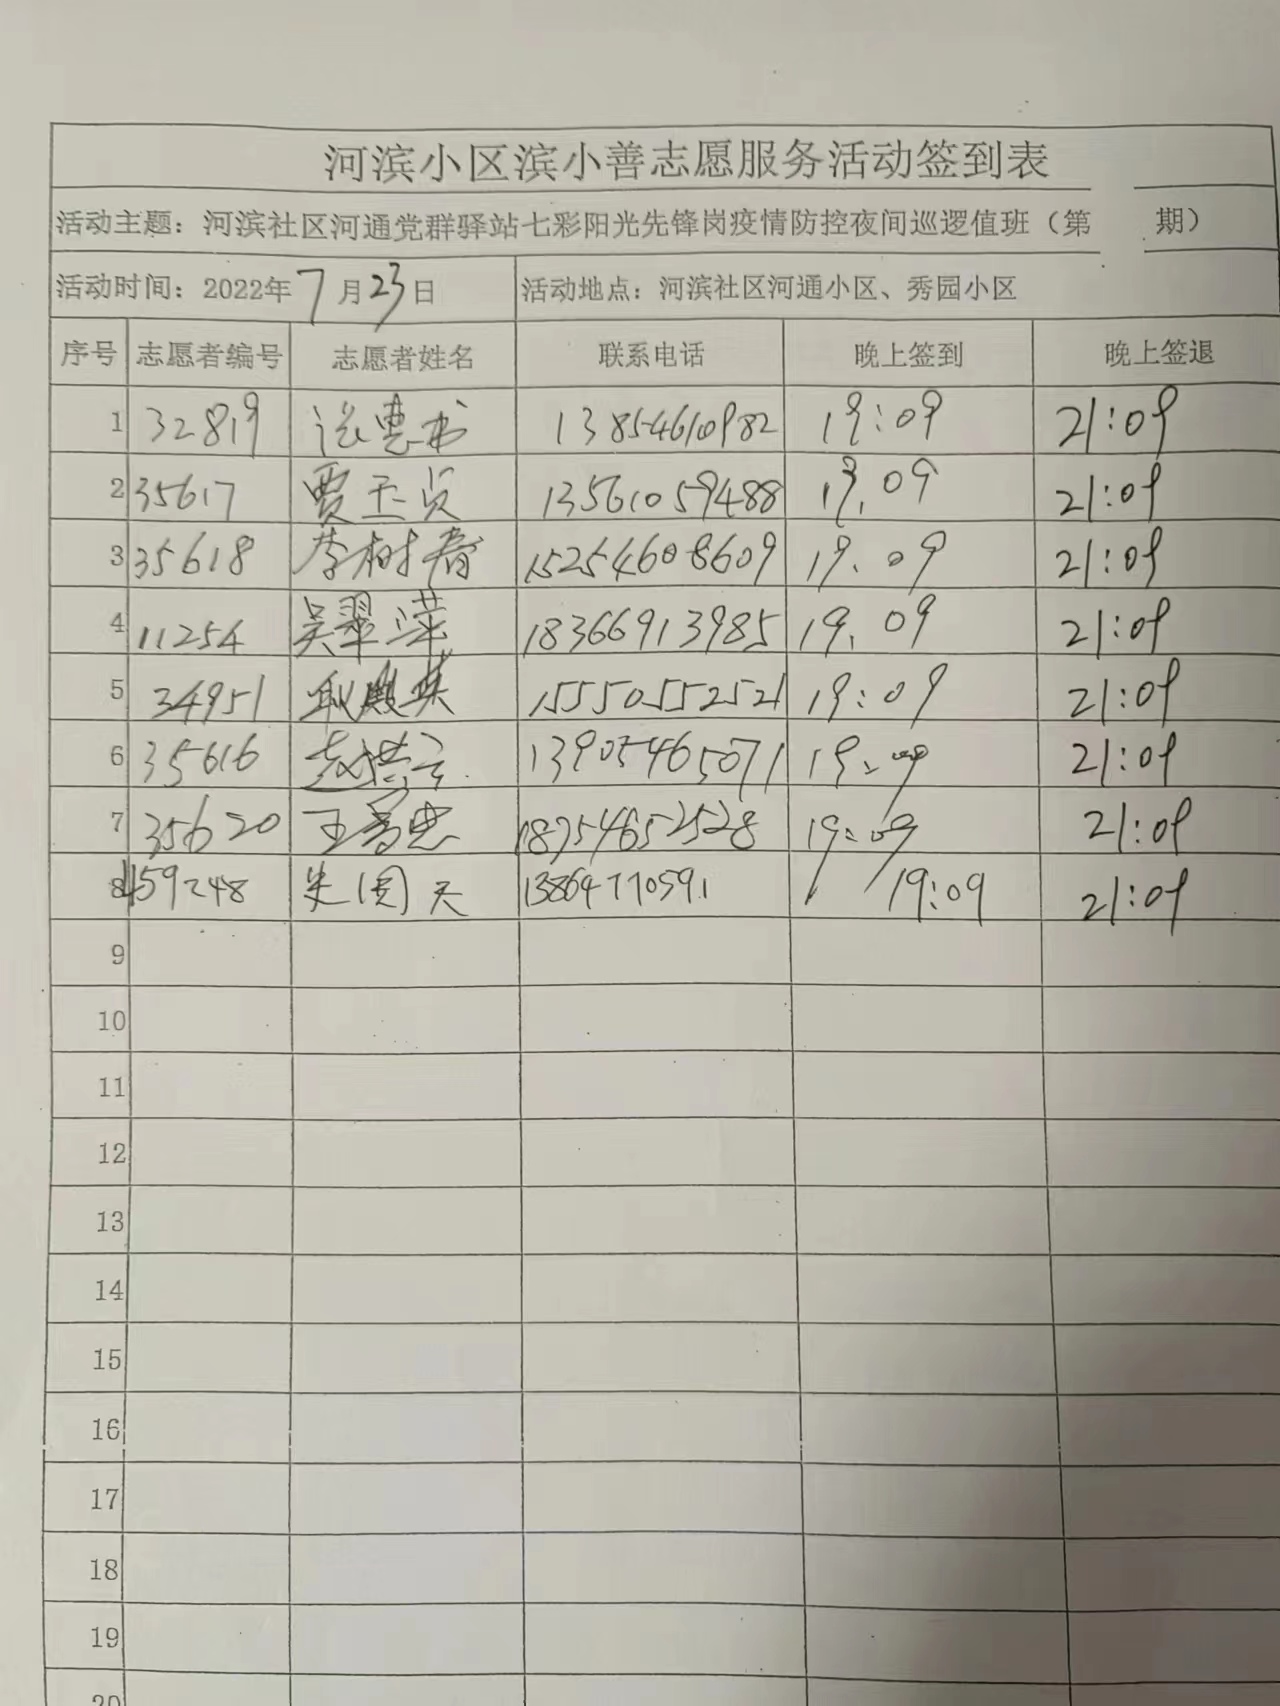 河滨小区滨小善志愿服务活动签到表
活动主题：河滨社区河通党群驿站七彩阳光先锋岗疫情防控夜间巡逻值班（第 期）
活动时间：2022年7月23日 活动地点：河滨社区河通小区、秀园小区
序号 志愿者编号 志愿者姓名 联系电话 晚上签到 晚上签退
1 32819 13854610982 19:09 21:09
2 35617 贾玉贞 13561059488 19.09 21:09
3 35618 李树春 15254608609 19.09 21:09
4 11254 吴翠萍 18366913985 19.09 21:09
5 34951 耿殿英 15550552521 19:09 21:09
6 35616 13905465071 19:09 21:09
7 35620 18754652528 19:09 21:09
8 159248 朱国天 13864770591 19:09 21:09
9
10
11
12
13
14
15
16
17
18
19
20